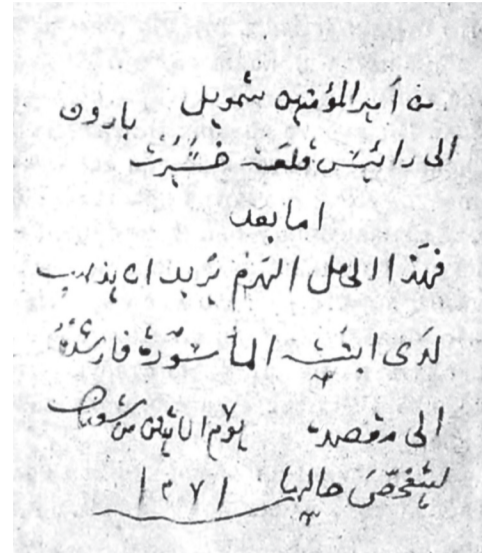 من أمير المؤمنين شمويل
بارون
الى رائيس قلعة
اما بعد
فهَذا الحامل الهَرِم يُريد ان يذهب
لدَى ابنته المأسورة
الى مقصده يوم الاثنين من
ليتفحّصَ حالها ١٢٧١